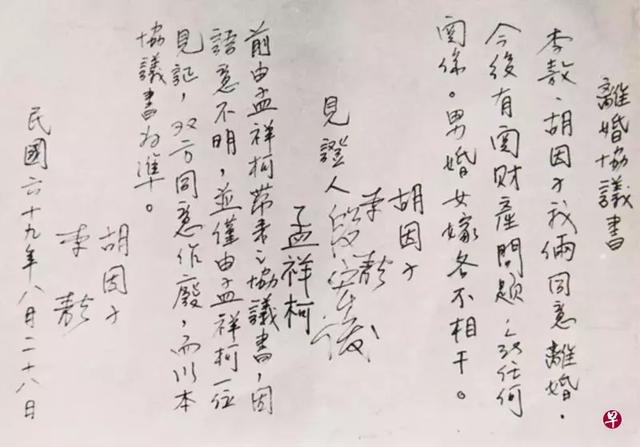 離婚協議書
李敖、胡因子我倆同意離婚,
今後有関財產問題,沒任何
関係。男婚女嫁各不相干。
胡因子
李敖
見證人段宏俊
孟祥柯
前由孟祥柯帶來之協議書,因
語意不明,並僅由孟祥柯一位
見証,双方同意作廢,而以本
協議書為準。
胡因子
李敖
民國六十九年八月二十八日
早